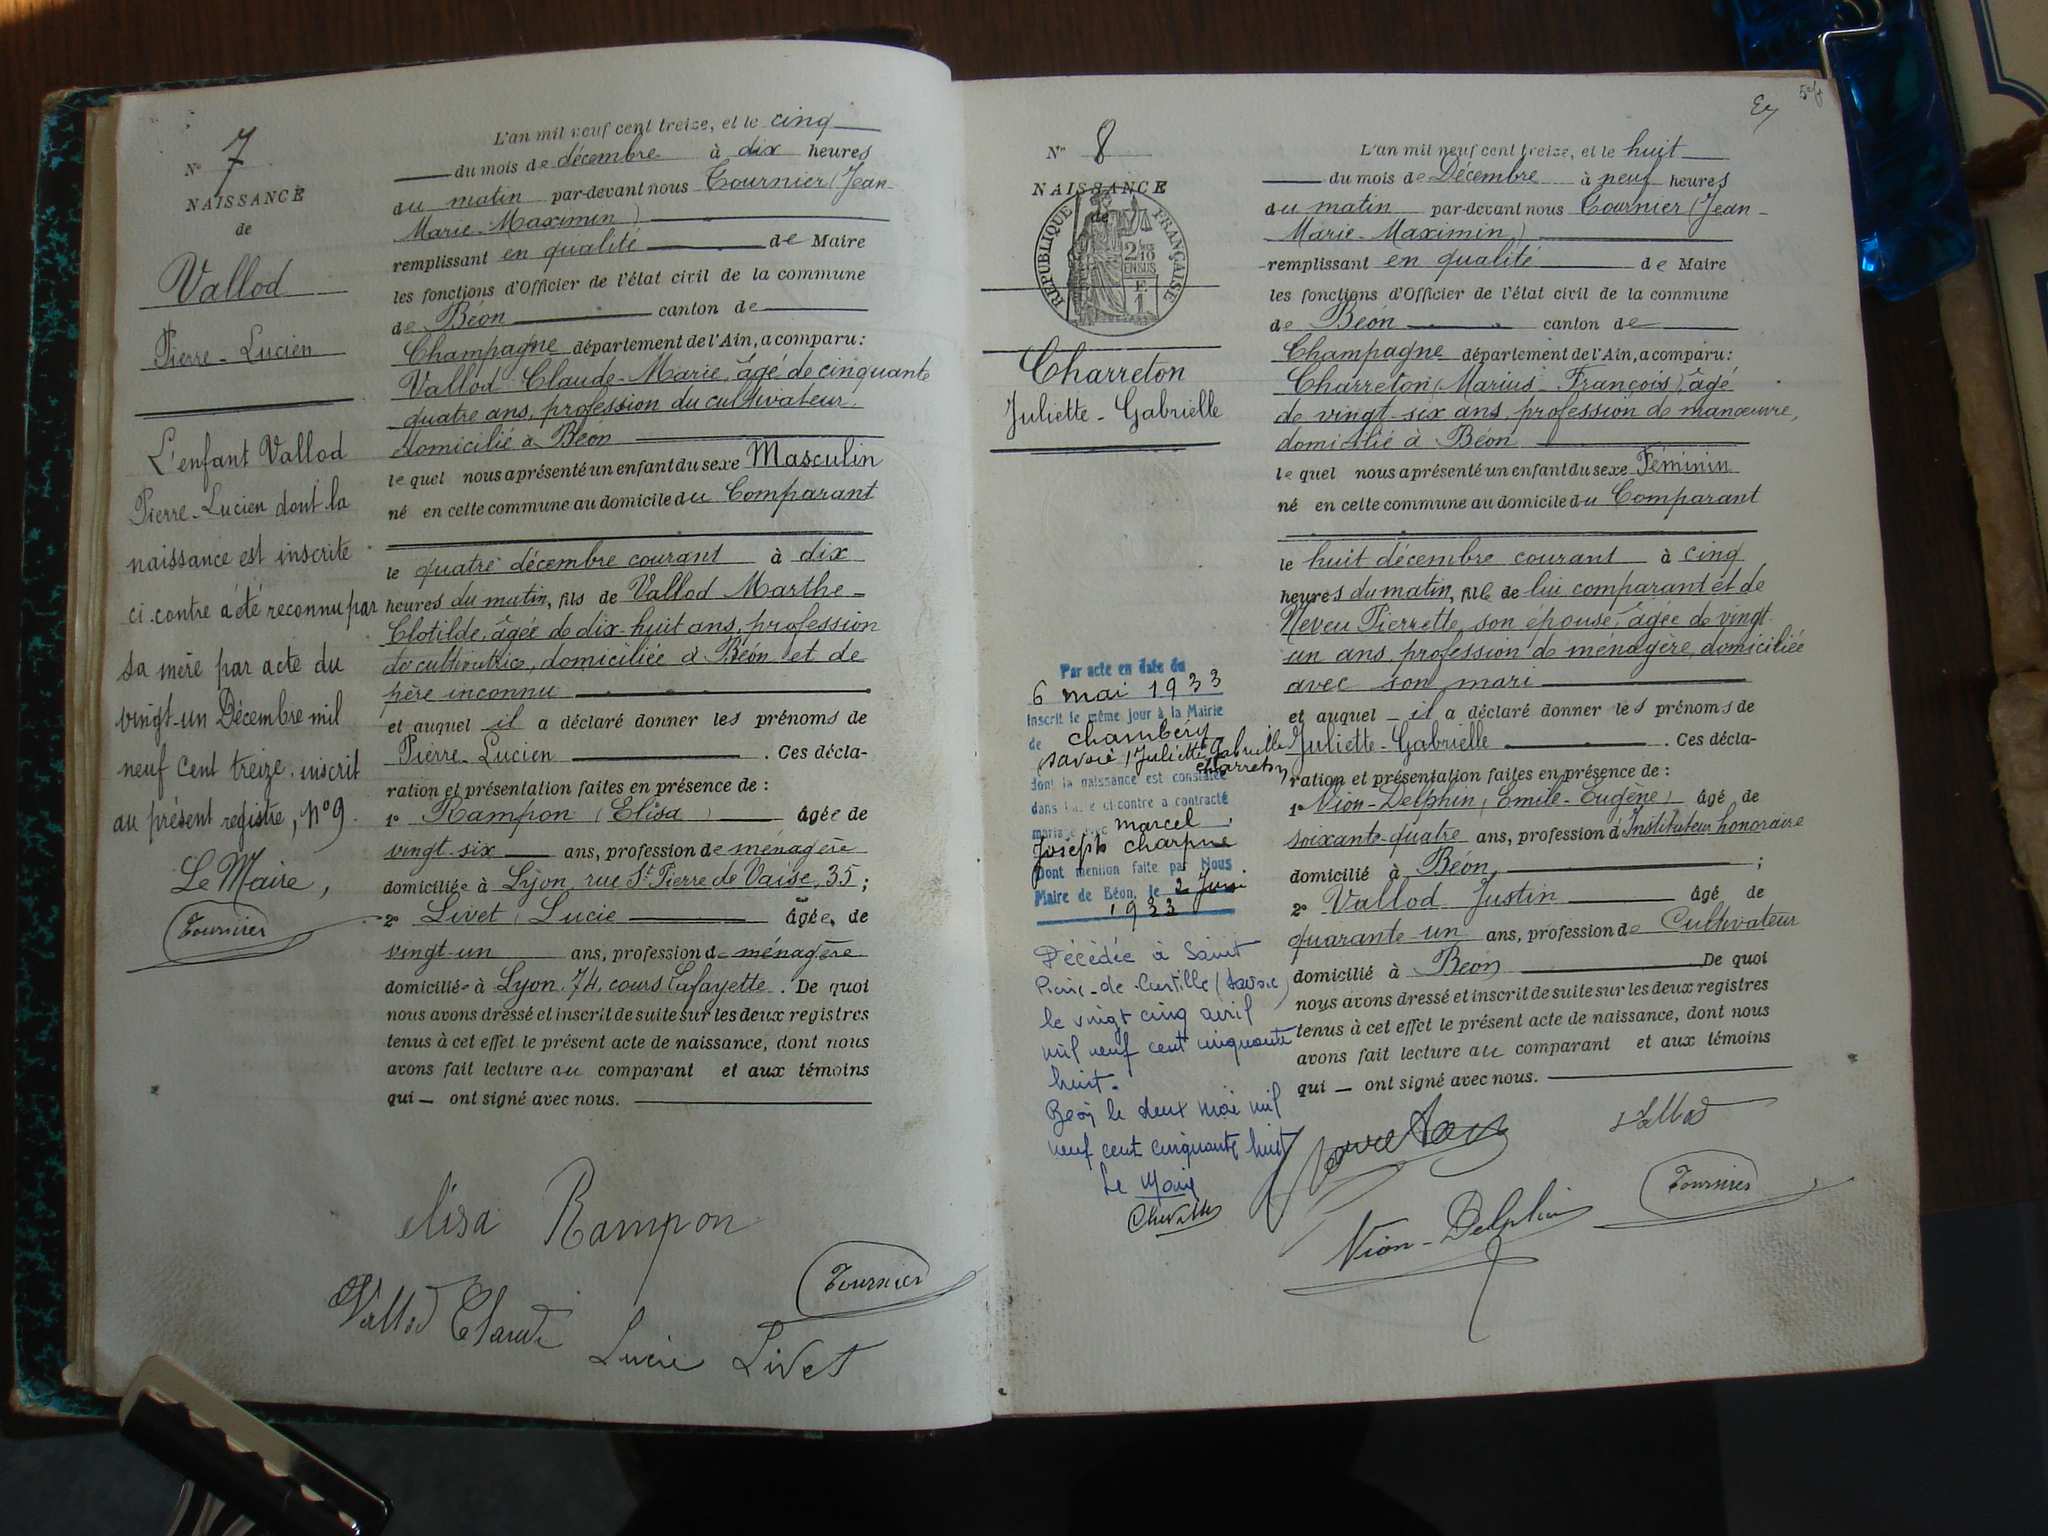 N° 7
NAISSANCE
de
Vallod
Pierre-Lucien
L'enfant Vallod
Pierre-Lucien dont la
naissance est inscrite
ci-contre a été reconnu par
sa mère par acte du
vingt-un Décembre mil
neuf cent treize, inscrit
au présent registre, N° 9.
Le Maire,
Tournier
L'an mil neuf cent treize, et le cinq
du mois de décembre à dix heures
du matin par-devant nous Tournier (Jean-
Marie-Maximin)
remplissant en qualité de Maire
les fonctions d'Officier de l'état civil de la commune
de Béon canton de
Champagne département de l'Ain, a comparu:
Vallod Claude-Marie, âgé de cinquante
quatre ans, profession du cultivateur,
domicilié à Béon
le quel nous a présenté un enfant du sexe Masculin
né en cette commune au domicile du Comparant
le quatre décembre courant à dix
heures du matin, fils de Vallod Marthe-
Clotilde, âgée de dix-huit ans, profession
de cultivatrice, domiciliée à Béon et de
père inconnu
et auquel il a déclaré donner les prénoms de
Pierre-Lucien . Ces décla-
ration et présentation faites en présence de :
1° Rampon (Elisa) âgée de
vingt-six ans, profession de ménagère
domiciliée à Lyon, rue St Pierre de Vaise, 35 ;
2° Livet, Lucie âgée, de
vingt-un ans, profession de ménagère
domiciliée à Lyon, 74, cours Lafayette . De quoi
nous avons dressé et inscrit de suite sur les deux registres
tenus à cet effet le présent acte de naissance, dont nous
avons fait lecture au comparant et aux témoins
qui — ont signé avec nous.
elisa Rampon
Tournier
Vallod Claude
Lucie Livet
N° 8
NAISSANCE
de
RÉPUBLIQUE FRANÇAISE
2/10 EN SUS
E
1
Charreton
Juliette-Gabrielle
Par acte en date du
6 mai 1933
inscrit le même jour à la Mairie
de chambéry
(savoie) Juliette Gabrielle
charreton
dont la naissance est constatée
dans l'acte ci-contre a contracté
mariage avec marcel
Joseph charpine
Dont mention faite par Nous
Maire de Béon, le 2 Juin
1933
Décédée à Saint
Pierre-de-Curtille (Savoie)
le vingt cinq avril
mil neuf cent cinquante
huit.
Béon le deux mai mil
neuf cent cinquante huit
Le Maire
L'an mil neuf cent treize, et le huit
du mois de Décembre à neuf heures
du matin par-devant nous Tournier (Jean-
Marie-Maximin)
remplissant en qualité de Maire
les fonctions d'Officier de l'état civil de la commune
de Béon canton de
Champagne département de l'Ain, a comparu:
Charreton (Marius-François), âgé
de vingt-six ans, profession de manœuvre,
domicilié à Béon
le quel nous a présenté un enfant du sexe Féminin
né en cette commune au domicile du Comparant
le huit décembre courant à cinq
heures du matin, fille de lui comparant et de
Neveu Pierrette, son épouse, âgée de vingt-
un ans, profession de ménagère, domiciliée
avec son mari
et auquel — il a déclaré donner les prénoms de
Juliette-Gabrielle . Ces décla-
ration et présentation faites en présence de :
1° Vion-Delphin, (Emile-Eugène) âgé de
soixante-quatre ans, profession d'Instituteur honoraire
domicilié à Béon, ;
2° Vallod Justin âgé de
quarante-un ans, profession de Cultivateur
domicilié à Béon De quoi
nous avons dressé et inscrit de suite sur les deux registres
tenus à cet effet le présent acte de naissance, dont nous
avons fait lecture au comparant et aux témoins
qui — ont signé avec nous.
Charreton
Vallod
Tournier
Vion-Delphin